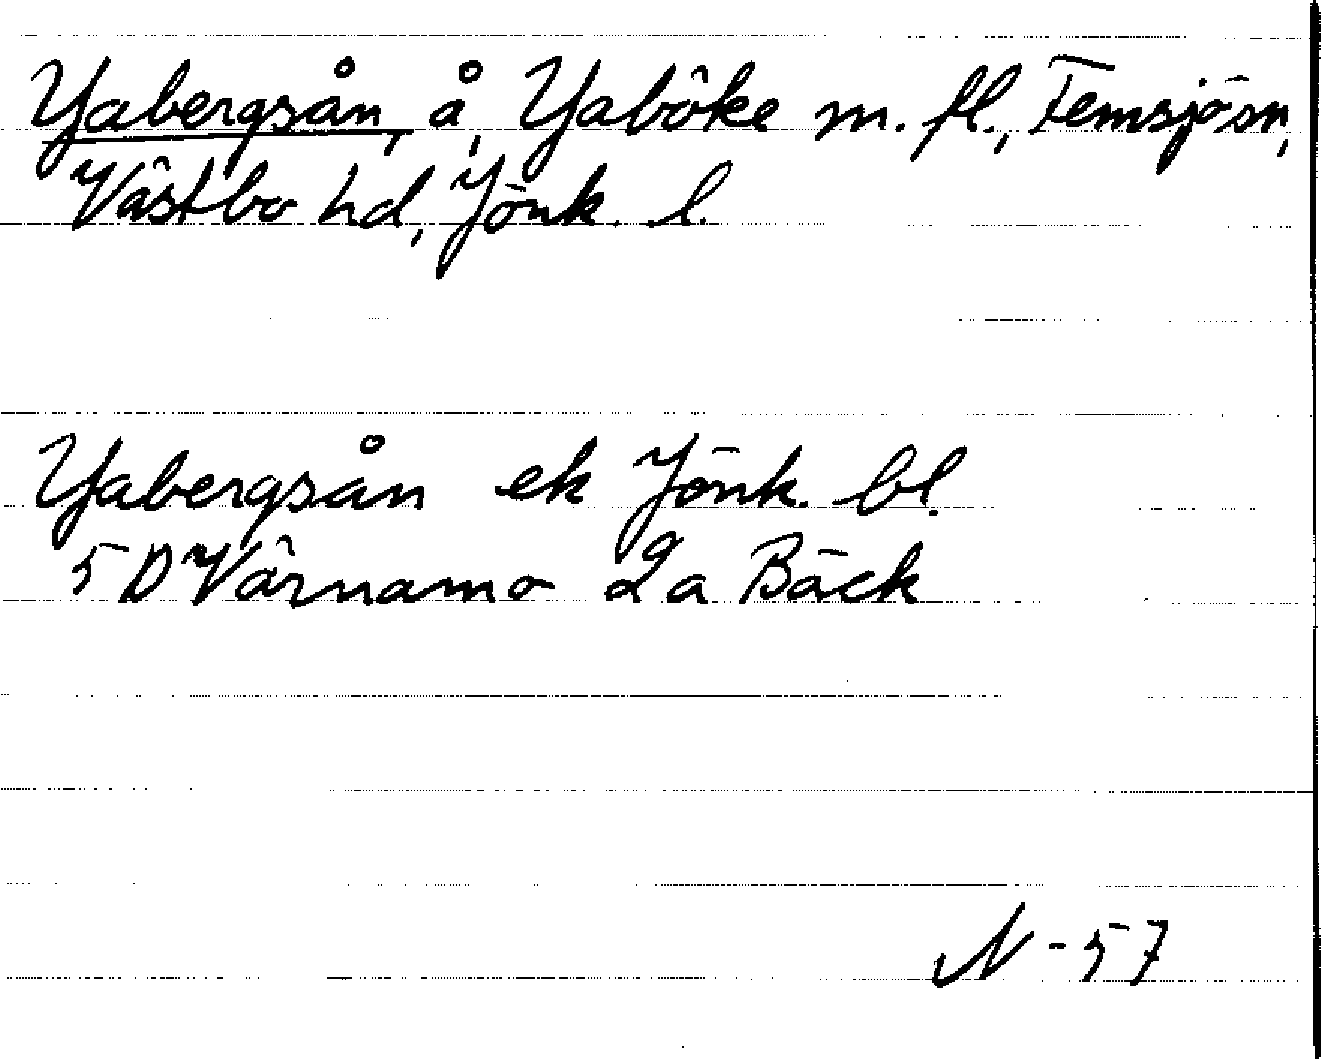 Yabergsån, å, Yaböke m. fl., Femsjö sn,
Västbo hd, Jönk. l.
Yabergsån ek Jönk. bl.
5 D Värnamo 2a Bäck
N - 57